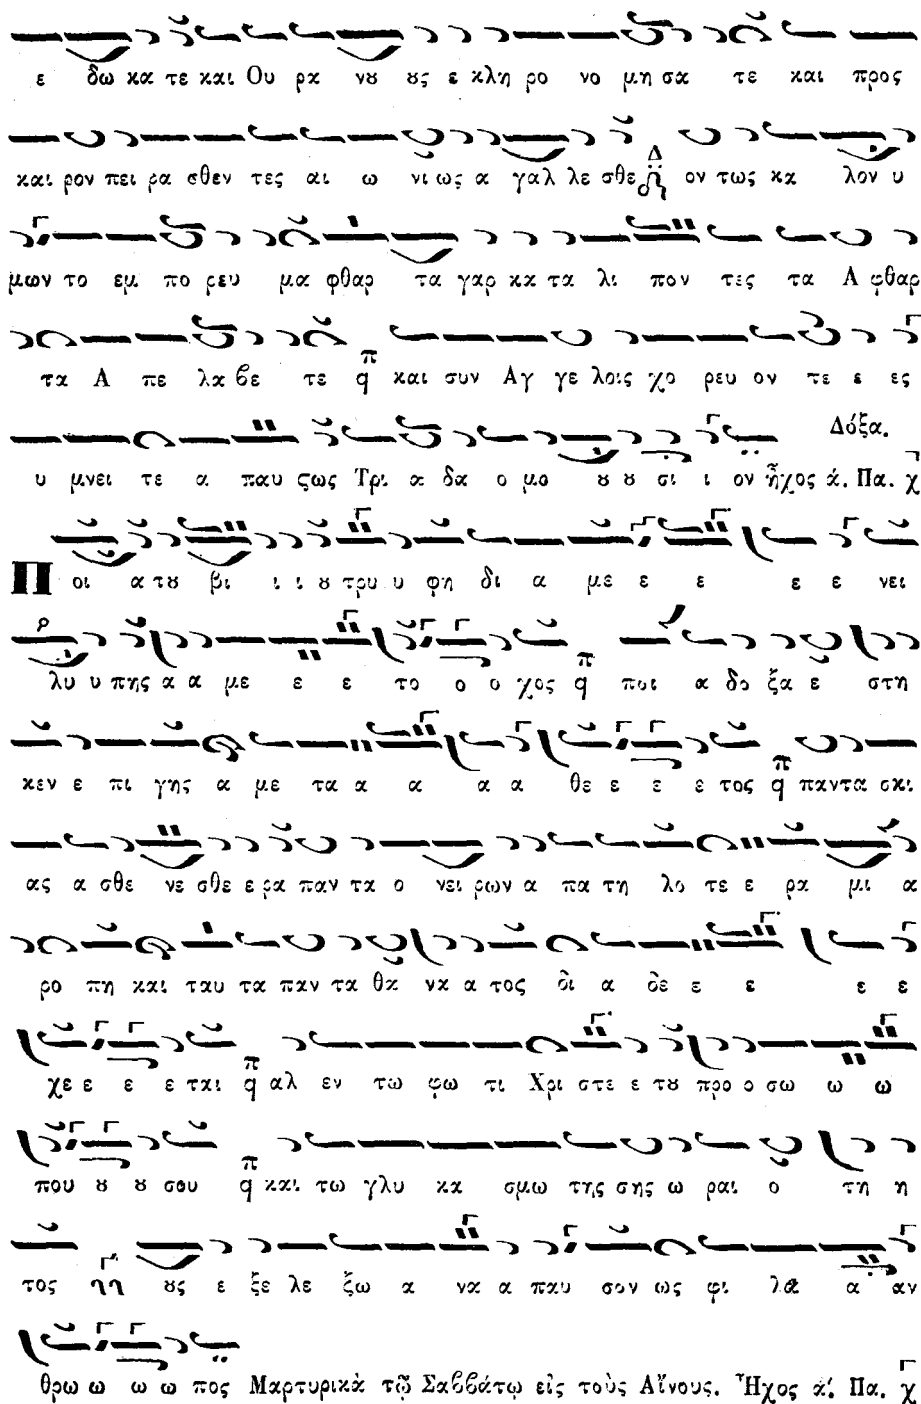 ε δω κα τε και Ου ρα νȣ ȣς ε κλη ρο νο μη σα τε και προς
και ρον πει ρα σθεν τες αι ω νι ως α γαλ λε σθε Δ ον τως κα λον υ
μων το εμ πο ρευ μα φθαρ τα γαρ κα τα λι πον τες τα Α φθαρ
τα Α πε λα βε τε π q και συν Αγ γε λοις χο ρευ ον τε ε ες
υ μνει τε α παυ ςως Τρι α δα ο μο ȣ ȣ σι ι ον ἦχος ά. Πα. χ Δόξα.
Π οι α τȣ βι ι ι ȣ τρυ υ φη δι α με ε ε ε ε νει
λυ υ πης α α με ε ε το ο ο χος π q ποι α δο ξα ε στη
κεν ε πι γης α με τα α α α α θε ε ε ε τος π q παντα σκι
ας α σθε νε σθε ε ρα παν τα ο νει ρων α πα τη λο τε ε ρα μι α
ρο πη και ταυ τα παν τα θα να α τος δι α δε ε ε ε ε
χε ε ε ε ται π q αλ εν τω φω τι Χρι στε ε τȣ προ ο σω ω ω
που ȣ ȣ σου π q και τω γλυ κα σμω της σης ω ραι ο τη η
τος ȣς ε ξε λε ξω α να α παυ σον ως φι λα α αν
θρω ω ω ω πος Μαρτυρικὰ τῷ Σαββάτῳ εἰς τοὺς Αἴνους. Ἦχος ά. Πα. χ